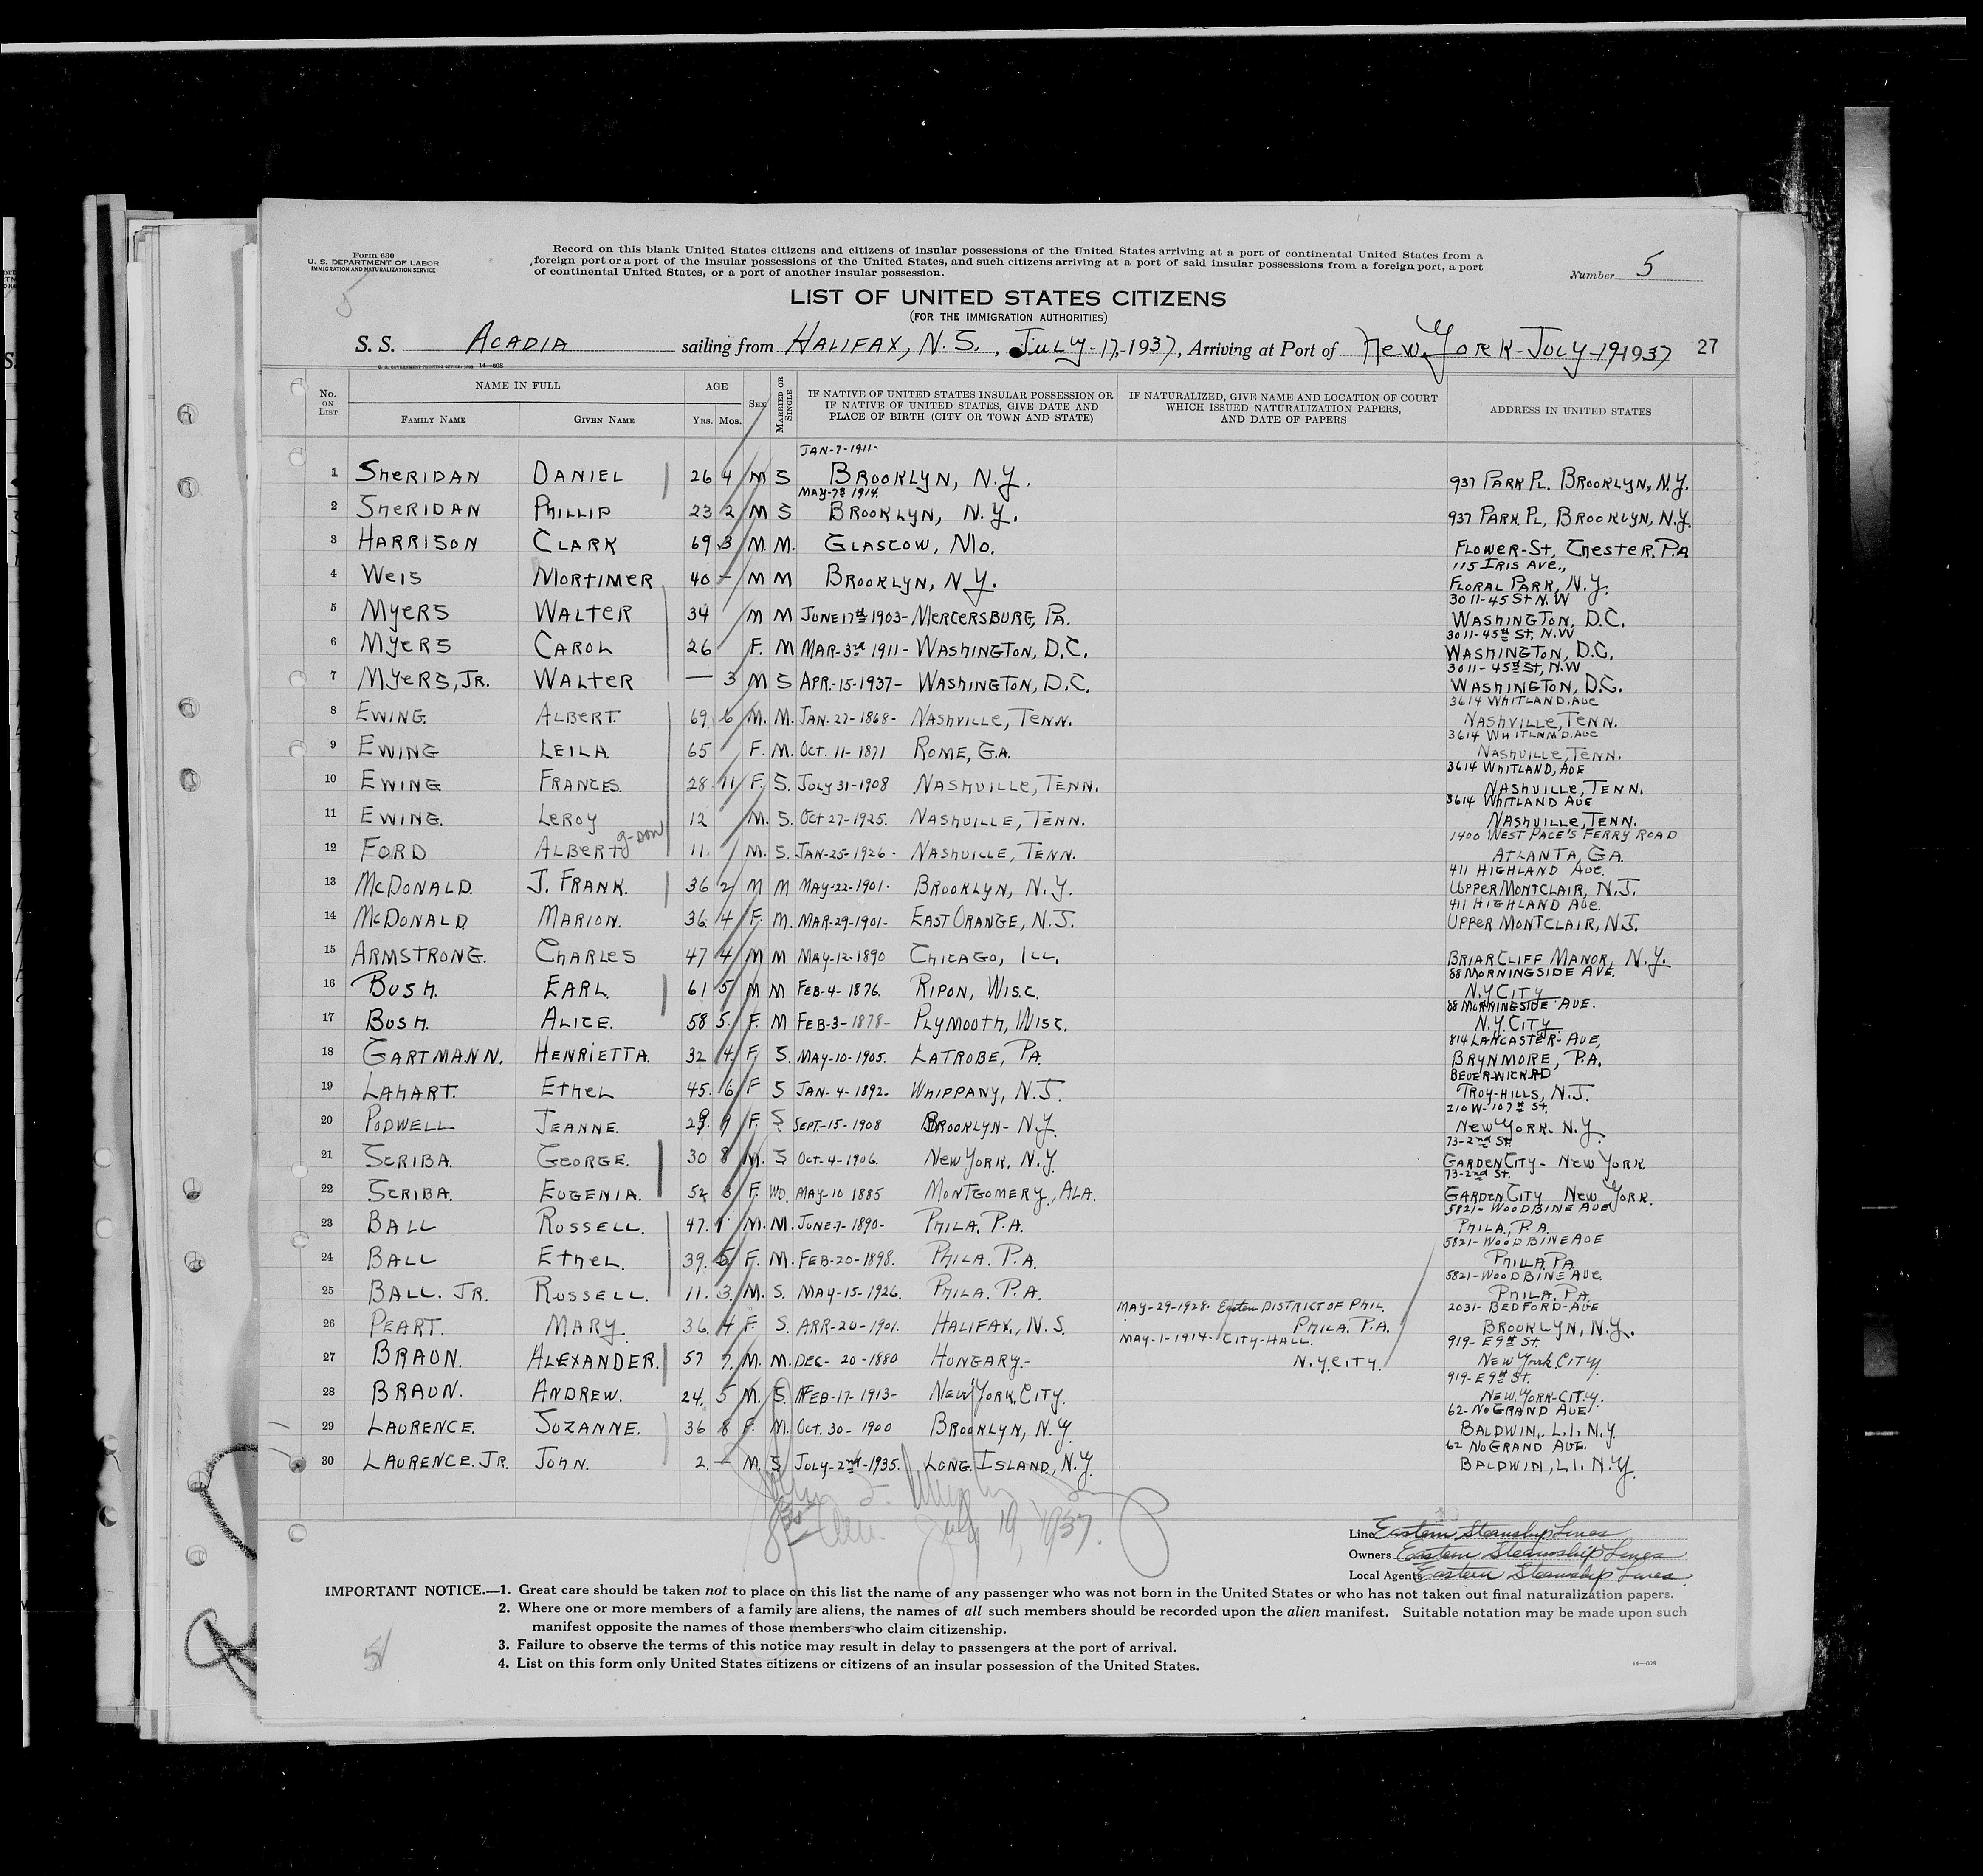 Form 630
U. S. DEPARTMENT OF LABOR
IMMIGRATION AND NATURALIZATION SERVICE
Record on this blank United States citizens and citizens of insular possessions of the United States arriving at a port of continental United States from a
foreign port or a port of the insular possessions of the United States, and such citizens arriving at a port of said insular possessions from a foreign port, a port
of continental United States, or a port of another insular possession.
Number 5
5
LIST OF UNITED STATES CITIZENS
(FOR THE IMMIGRATION AUTHORITIES)
S. S. ACADIA sailing from HALIFAX, N.S., JULY-17,-1937, Arriving at Port of NEW YORK-JULY-19-1937 27
No. ON LIST NAME IN FULL FAMILY NAME GIVEN NAME AGE YRS. MOS. SEX MARRIED OR SINGLE IF NATIVE OF UNITED STATES INSULAR POSSESSION OR IF NATIVE OF UNITED STATES, GIVE DATE AND PLACE OF BIRTH (CITY OR TOWN AND STATE) IF NATURALIZED, GIVE NAME AND LOCATION OF COURT WHICH ISSUED NATURALIZATION PAPERS, AND DATE OF PAPERS ADDRESS IN UNITED STATES
JAN-7-1911-
1 SHERIDAN DANIEL 26 4 M S BROOKLYN, N.Y. 937 PARK PL. BROOKLYN, N.Y.
MAY-7th 1914
2 SHERIDAN PHILLIP 23 2 M S BROOKLYN, N.Y. 937 PARK PL, BROOKLYN, N.Y.
3 HARRISON CLARK 69 3 M. M. GLASCOW, MO. FLOWER-St, CHESTER, P.A
115 IRIS AVE.,
4 WEIS MORTIMER 40 - M M BROOKLYN, N.Y. FLORAL PARK, N.Y.
3011-45 St N.W
5 MYERS WALTER 34 M M JUNE 17th 1903- MERCERSBURG, PA. WASHINGTON, D.C.
3011-45th St, N.W
6 MYERS CAROL 26 F. M MAR-3rd 1911- WASHINGTON, D.C. WASHINGTON, D.C.
3011-45th St, N.W
7 MYERS, JR. WALTER — 3 M S APR.-15-1937- WASHINGTON, D.C. WASHINGTON, D.C.
3614 WHITLAND, AVE
8 EWING ALBERT. 69. 6 M. M. JAN. 27-1868- NASHVILLE, TENN. NASHVILLE, TENN.
3614 WHITLAND. AVE
9 EWING LEILA 65 F. M. OCT. 11-1871 ROME, GA. NASHVILLE, TENN.
3614 WHITLAND, AVE
10 EWING FRANCES. 28 11 F. S. JULY 31-1908 NASHVILLE, TENN. NASHVILLE, TENN.
3614 WHITLAND AVE
11 EWING. LEROY 12 M. S. OCT 27-1925. NASHVILLE, TENN. NASHVILLE, TENN.
g-son 1400 WEST PACE'S FERRY ROAD
12 FORD ALBERT 11. M. S. JAN-25-1926- NASHVILLE, TENN. ATLANTA, GA.
411 HIGHLAND AVE.
13 McDONALD. J. FRANK. 36 2 M M MAY-22-1901- BROOKLYN, N.Y. UPPER MONTCLAIR, N.J.
411 HIGHLAND AVE.
14 McDONALD MARION. 36. 4 F. M. MAR-29-1901- EAST ORANGE, N.J. UPPER MONTCLAIR, N.J.
15 ARMSTRONG. CHARLES 47 4 M M MAY-12-1890 CHICAGO, ILL. BRIARCLIFF MANOR, N.Y.
88 MORNINGSIDE AVE.
16 BUSH. EARL 61 5 M M FEB-4-1876. RIPON, WISC. N.Y CITY
88 MORNINGSIDE AVE.
17 BUSH. ALICE. 58 5. F. M FEB-3-1878- PLYMOUTH, WISC. N.Y. CITY
814 LANCASTER-AVE,
18 GARTMANN. HENRIETTA. 32 4 F. S. MAY-10-1905. LATROBE, PA. BRYNMORE, P.A.
BEVERWICK RD
19 LAHART. ETHEL 45. 6 F S JAN-4-1892- WHIPPANY, N.J. TROY-HILLS, N.J.
210 W-107th St.
20 PODWELL JEANNE. 28. 9 F. S SEPT-15-1908 BROOKLYN- N.Y. NEW YORK. N.Y.
73-2nd St.
21 SCRIBA. GEORGE. 30 8 M. S OCT-4-1906. NEW YORK, N.Y. GARDEN CITY- NEW YORK
73-2nd St.
22 SCRIBA. EUGENIA. 52 3 F. WD. MAY-10 1885 MONTGOMERY, ALA. GARDEN CITY NEW YORK.
5821-WOODBINE AVE
23 BALL RUSSELL. 47. 1 M. M. JUNE-7-1890- PHILA. P.A. PHILA, P.A.
5821-WOODBINE AVE
24 BALL ETHEL. 39. 5 F. M. FEB-20-1898. PHILA. P.A. PHILA, PA
5821-WOODBINE AVE.
25 BALL. JR. RUSSELL. 11. 3. M. S. MAY-15-1926. PHILA. P.A. PHILA. PA
MAY-29-1928. Eastern DISTRICT OF PHIL. 2031-BEDFORD-AVE
26 PEART. MARY 36. 4 F. S. APR-20-1901. HALIFAX, N.S. PHILA. P.A. BROOKLYN, N.Y.
MAY-1-1914-CITY-HALL. 919-E 9th St.
27 BRAUN. ALEXANDER. 57 7. M. M. DEC-20-1880 HUNGARY.- N.Y. CITY. NEW York CITY
919-E 9th St.
28 BRAUN. ANDREW. 24, 5 M. S. FEB-17-1913- NEW YORK. CITY. NEW. YORK-CITY.
62-NO GRAND AVE
29 LAURENCE. SUZANNE. 36 8 F. M. OCT. 30-1900 BROOKLYN, N.Y BALDWIN, L.I. N.Y.
62 NO GRAND AVE.
30 LAURENCE. JR. JOHN. 2. - M. S JULY-2nd-1935. LONG ISLAND, N.Y. BALDWIN, L.I. N.Y.
July 19, 1937.
Line Eastern Steamship Lines
Owners Eastern Steamship Lines
Local Agents Eastern Steamship Lines.
IMPORTANT NOTICE.—1. Great care should be taken not to place on this list the name of any passenger who was not born in the United States or who has not taken out final naturalization papers.
2. Where one or more members of a family are aliens, the names of all such members should be recorded upon the alien manifest. Suitable notation may be made upon such
manifest opposite the names of those members who claim citizenship.
3. Failure to observe the terms of this notice may result in delay to passengers at the port of arrival.
4. List on this form only United States citizens or citizens of an insular possession of the United States.
5